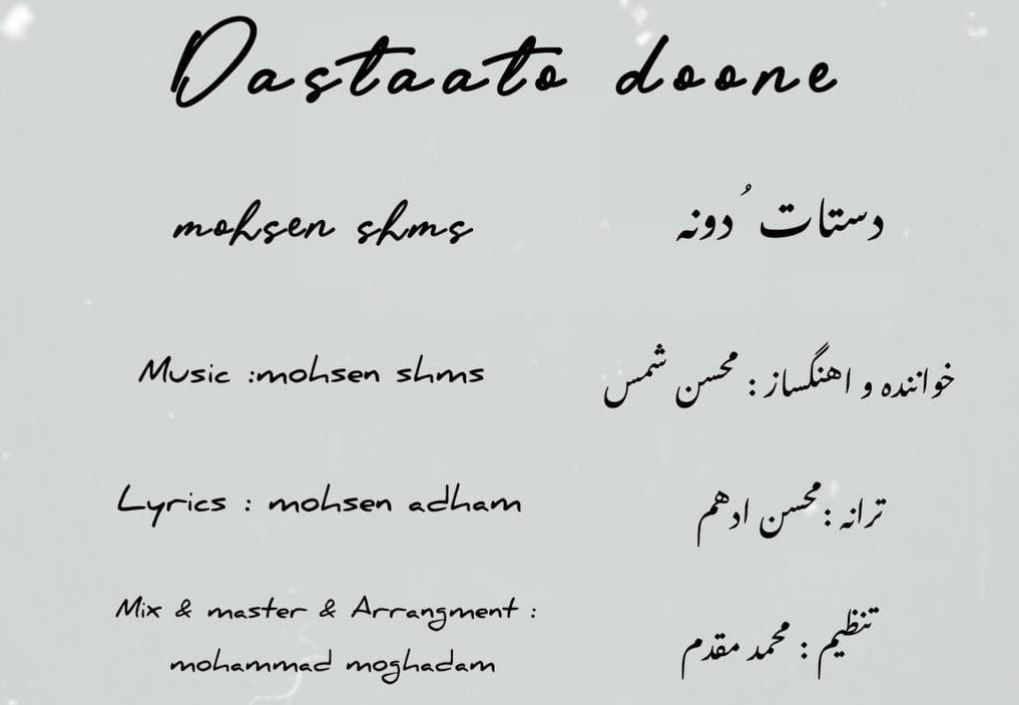 Dastaato doone
mohsen shms
دستات ُدونه
Music :mohsen shms
خواننده و اهنگساز : محسن شمس
Lyrics : mohsen adham
ترانه : محسن ادهم
Mix & master & Arrangment :
mohammad moghadam
تنظیم : محمد مقدم